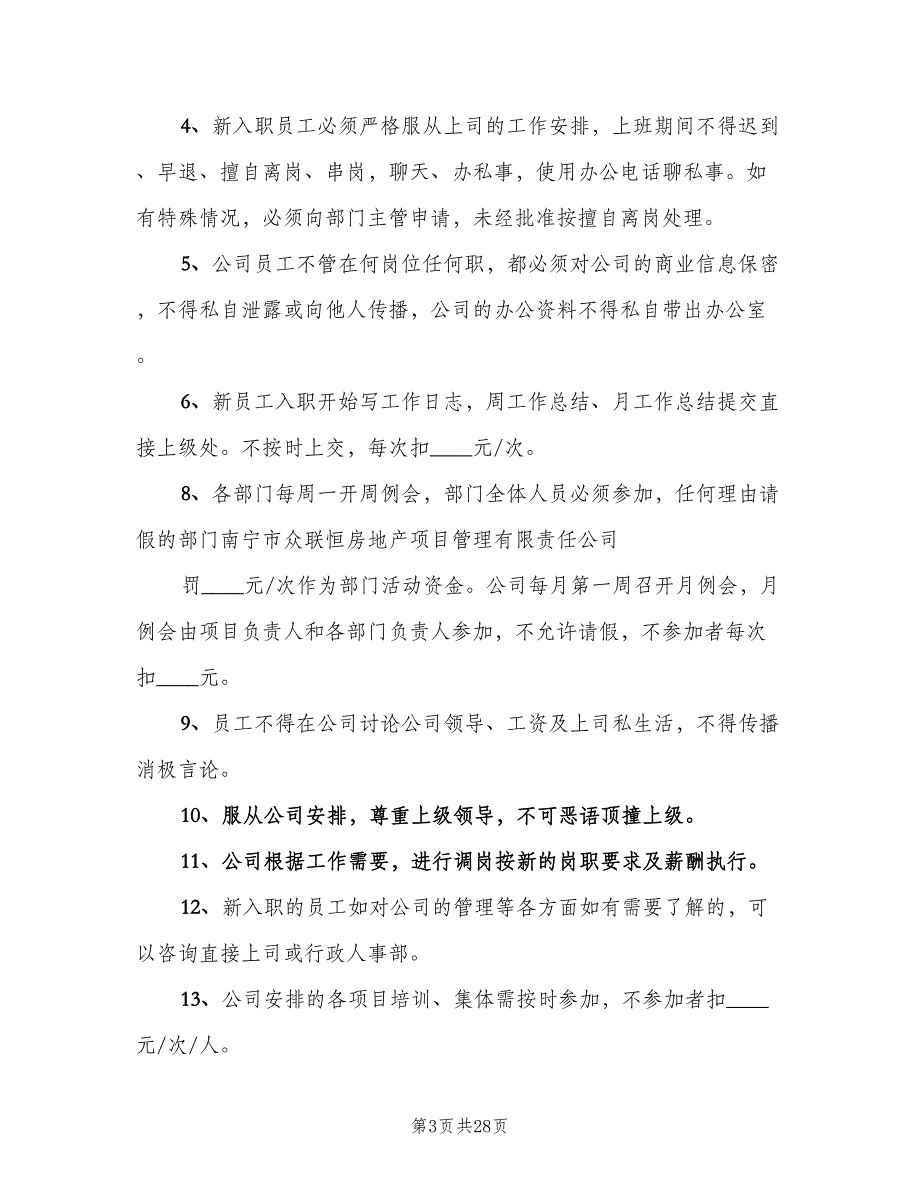 4、新入职员工必须严格服从上司的工作安排，上班期间不得迟到
、早退、擅自离岗、串岗，聊天、办私事，使用办公电话聊私事。如
有特殊情况，必须向部门主管申请，未经批准按擅自离岗处理。
5、公司员工不管在何岗位任何职，都必须对公司的商业信息保密
，不得私自泄露或向他人传播，公司的办公资料不得私自带出办公室
。
6、新员工入职开始写工作日志，周工作总结、月工作总结提交直
接上级处。不按时上交，每次扣____元/次。
8、各部门每周一开周例会，部门全体人员必须参加，任何理由请
假的部门南宁市众联恒房地产项目管理有限责任公司
罚____元/次作为部门活动资金。公司每月第一周召开月例会，月
例会由项目负责人和各部门负责人参加，不允许请假，不参加者每次
扣____元。
9、员工不得在公司讨论公司领导、工资及上司私生活，不得传播
消极言论。
10、服从公司安排，尊重上级领导，不可恶语顶撞上级。
11、公司根据工作需要，进行调岗按新的岗职要求及薪酬执行。
12、新入职的员工如对公司的管理等各方面如有需要了解的，可
以咨询直接上司或行政人事部。
13、公司安排的各项目培训、集体需按时参加，不参加者扣____
元/次/人。
第3页共28页